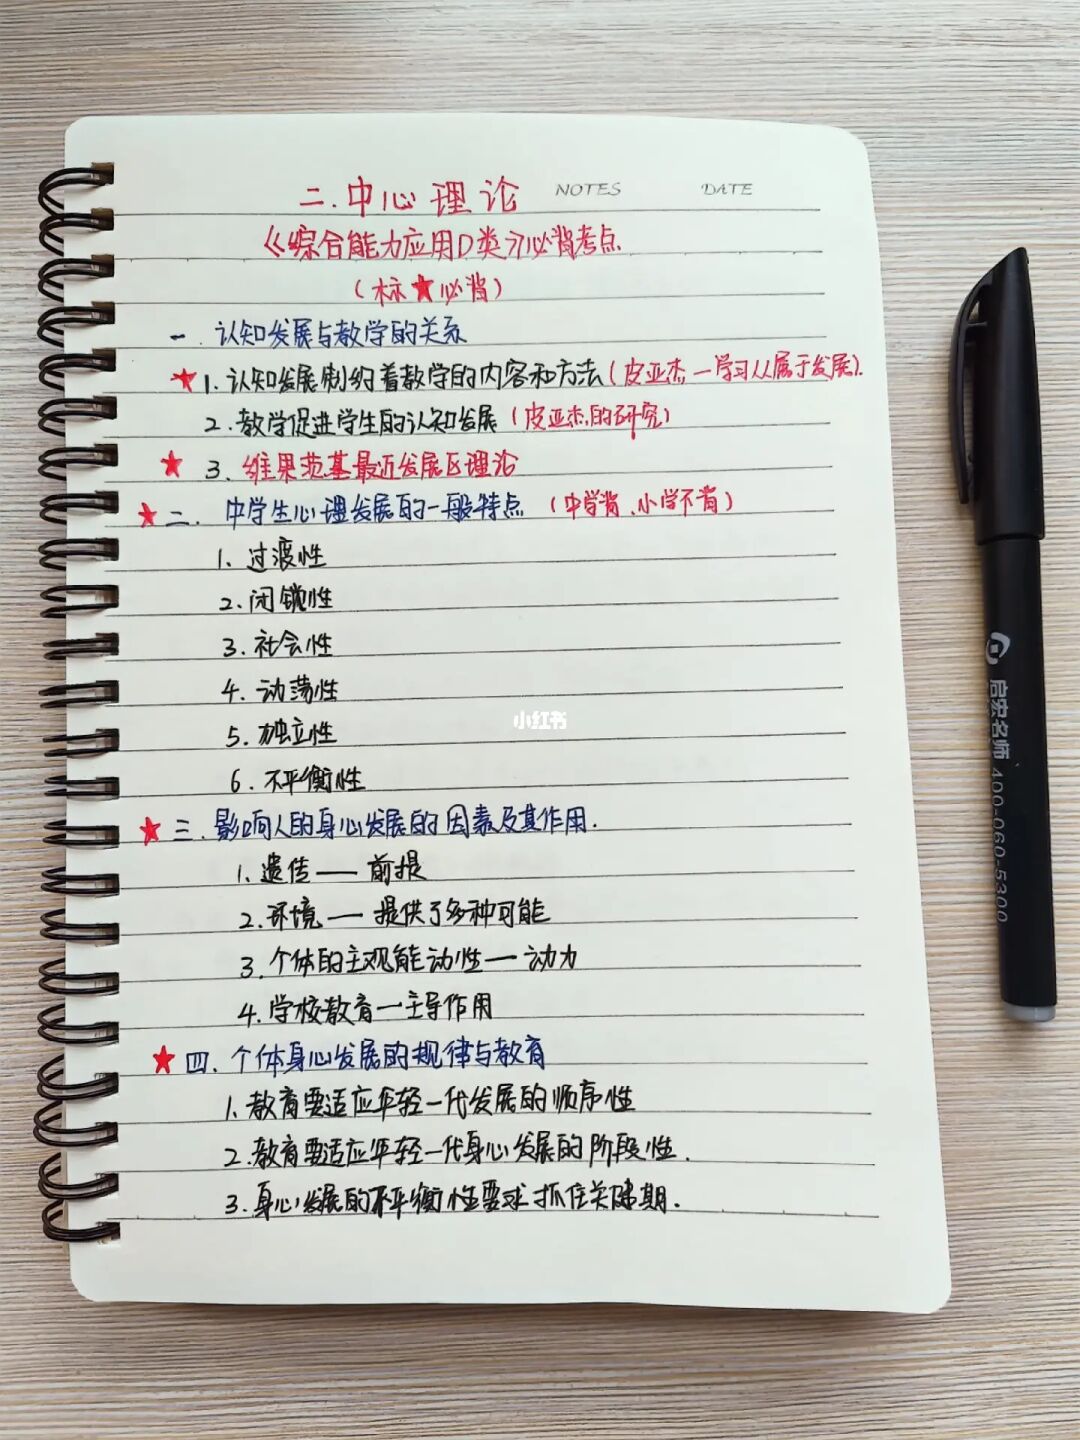 二.中心理论
NOTES DATE
《综合能力应用D类》必背考点
（标★必背）
一.认知发展与教学的关系
★1.认知发展制约着教学的内容和方法（皮亚杰—学习从属于发展）.
2.教学促进学生的认知发展（皮亚杰的研究）
★ 3.维果茨基最近发展区理论
★二.中学生心理发展的一般特点（中学背、小学不背）
1.过渡性
2.闭锁性
3.社会性
4.动荡性
5.独立性
6.不平衡性
★三.影响人的身心发展的因素及其作用.
1.遗传——前提
2.环境——提供了多种可能
3.个体的主观能动性—动力
4.学校教育—主导作用
★四.个体身心发展的规律与教育
1.教育要适应年轻一代发展的顺序性
2.教育要适应年轻一代身心发展的阶段性.
3.身心发展的不平衡性要求抓住关键期.
小红书
启宏名师 400-060-5300